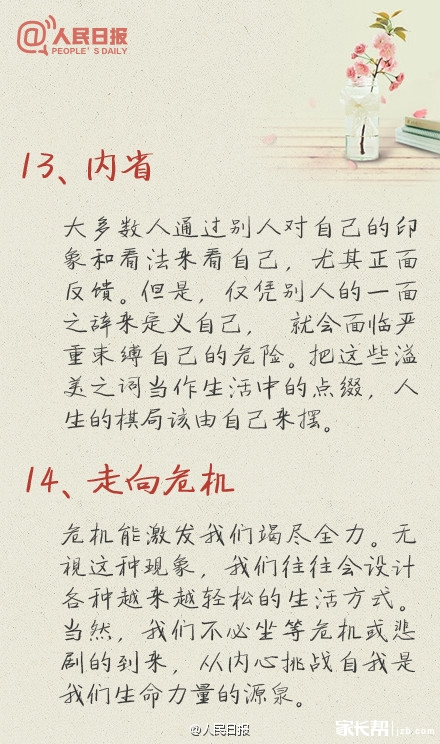 @人民日报
PEOPLE'S DAILY
13、内省
大多数人通过别人对自己的印
象和看法来看自己，尤其正面
反馈。但是，仅凭别人的一面
之辞来定义自己， 就会面临严
重束缚自己的危险。把这些溢
美之词当作生活中的点缀，人
生的棋局该由自己来摆。
14、走向危机
危机能激发我们竭尽全力。无
视这种现象，我们往往会设计
各种越来越轻松的生活方式。
当然，我们不必坐等危机或悲
剧的到来，从内心挑战自我是
我们生命力量的源泉。
@人民日报
家长帮 jzb.com